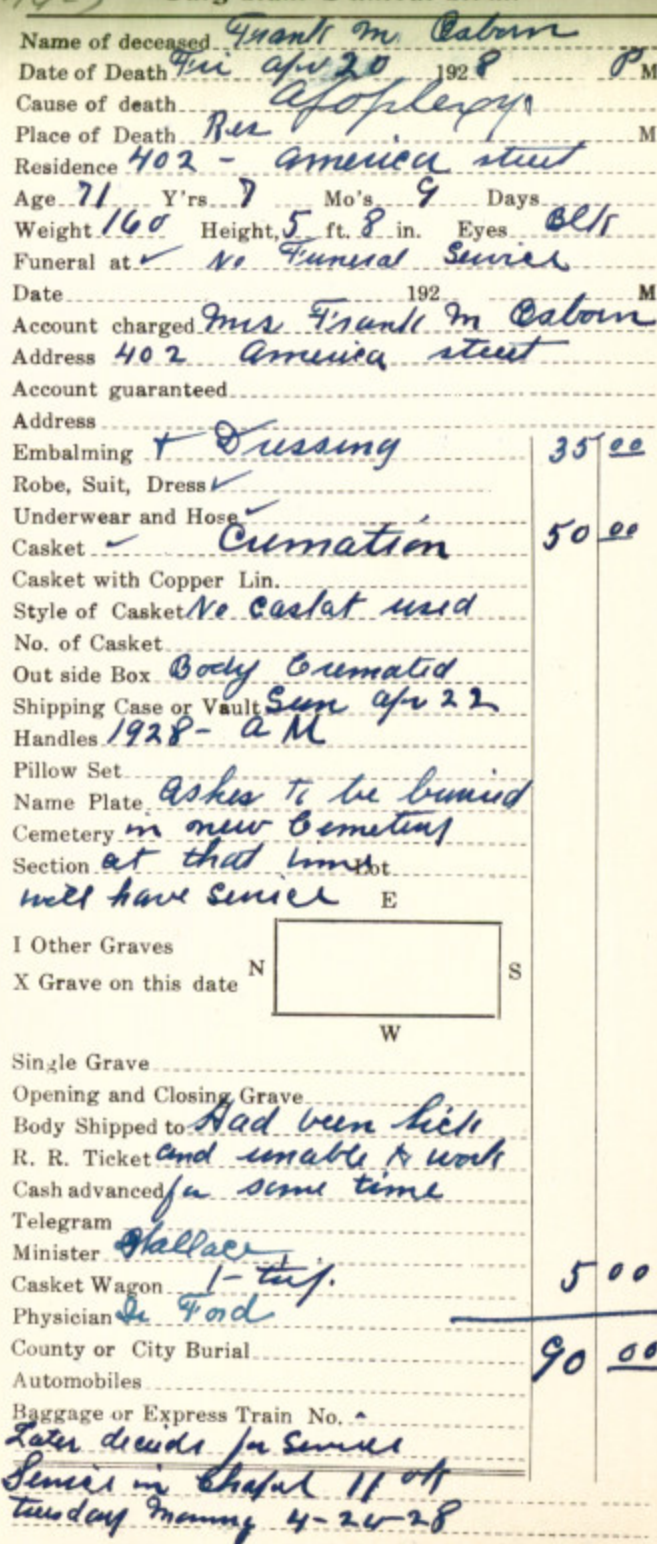 Name of deceased Frank M. Osborn
Date of Death Fri Apr 20 1928 P M
Cause of death Apoplexy
Place of Death Res M
Residence 402 - America street
Age 71 Y'rs 7 Mo's 9 Days
Weight 160 Height, 5 ft. 8 in. Eyes Blk
Funeral at ✓ No Funeral Service
Date 192 M
Account charged Mrs Frank M Osborn
Address 402 America street
Account guaranteed
Address
Embalming + Dressing 35 00
Robe, Suit, Dress ✓
Underwear and Hose ✓
Casket ✓ Cremation 50 00
Casket with Copper Lin.
Style of Casket No Caskat used
No. of Casket
Out side Box Body Cremated
Shipping Case or Vault Sun Apr 22
Handles 1928- A M
Pillow Set
Name Plate Ashes to be buried
Cemetery in new Cemetery
Section at that time Lot
will have Service E
I Other Graves
X Grave on this date N S
W
Single Grave
Opening and Closing Grave
Body Shipped to Had been sick
R. R. Ticket and unable to work
Cash advanced for some time
Telegram
Minister Wallace
Casket Wagon 1- trip. 5 00
Physician Dr Ford
County or City Burial 90 00
Automobiles
Baggage or Express Train No.
Later decided for Services
Service in Chapel 11 ok
tuesday Morning 4-24-28